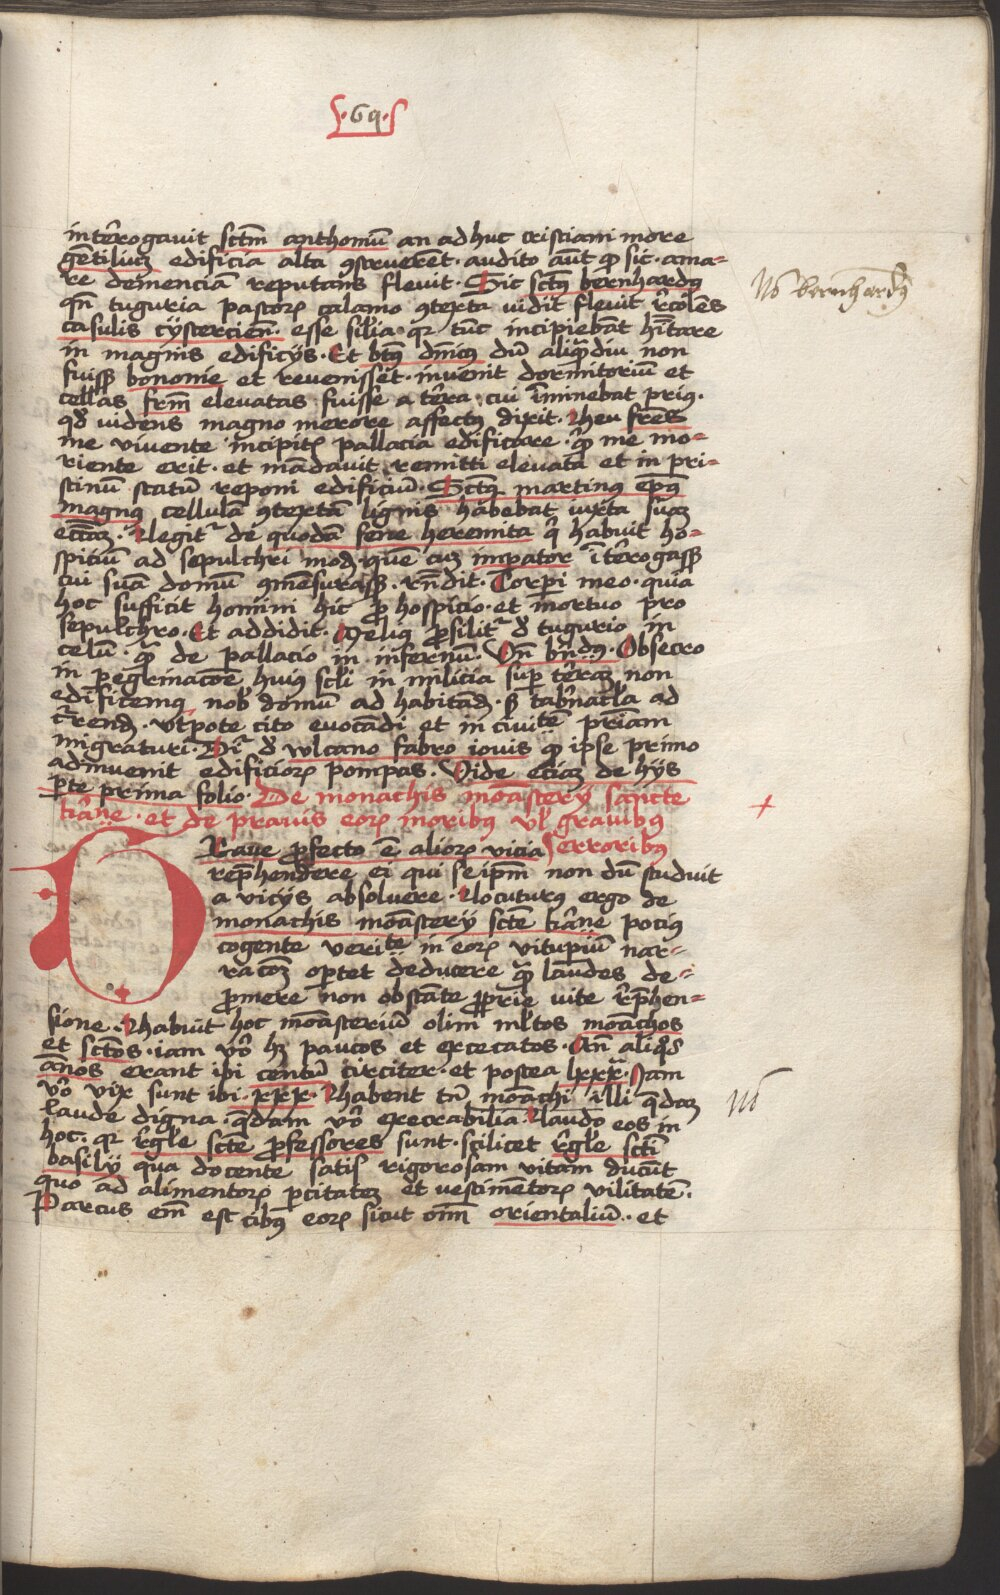 ·69·
interrogauit sctm̄ anthoniū an ad huc cristiani more
gentiliuꝫ edificia alta ꝯstruerēt · audito aūt ꝙ sic · ama-
re demenciā reputans fleuit · Sic sctꝰ bernhardꝰ
No bernhardꝰ
qn̄ tuguria pastorꝝ calamo ꝯtexta vidit fleuit rͤcolēs
casulis cystercien̄ · esse silia · qr tūc incipiebāt hītare
in magnis edificijs · Et btꝰ dn̄icꝰ dū aliqͣdiu non
fuisꝫ bononie et reuenisset · inuenit dormitoriū et
cellas frm̄ eleuatas fuisse a terra · cui īminebat priꝰ ·
qd̄ videns magno merore affectꝰ dixit · Heu fres
me viuente incipitꝭ pallacia edificare · qͥ me mo-
riente erit · et mādauit remitti eleuatā et in pri-
stinū statū reponi edificiū · Sctꝰ martinꝰ ep̄ꝰ
magnꝰ cellulā ꝯtextā lignis habebat iuxta suā
eccāꝫ · Legitͬ de quodā sene heremita qͥ habuit ho-
spitiū ad sepulchri modū · quē cuꝫ impator īterogasꝫ
cui suā domū ꝯmēsurasꝫ · rn̄dit · Corpi meo · quia
hoc sufficit homini hic ꝓ hospicio · et mortuo pro
sepulchro · Et addidit · Meliꝰ ꝓsilitͬ d̄ tugurio in
celū qͣ de pallacio in infernū · Vn̄ bn̄dꝰ · Obsecro
in pegrinacōe huiꝰ scli in milicia suꝑ terraꝫ non
edificemꝰ nob̄ domū ad habitandꝫ · sꝫ tabnacla ad
trendꝫ · vtpote cito euocādi et in ciuitē priam
migraturi · Dͬ d̄ vulcano fabro iouis ꝙ ipse primo
adinuenit edificiorꝝ pompas · Vide eciaꝫ de hijs
ꝑte prima folio · De monachis mōastery sancte
kͣrine · et de prauis eorꝝ moribꝰ vl̄ grauibꝰ
Graue ꝓfecto ē aliorꝝ vicia erroribꝰ
rephendere ei qui seipm̄ non dū studuit
a vicijs absoluere · Locuturꝰ ergo de
monachis mōastery scte kͣrine pociꝰ
cogente veritͤte in eorꝝ vitupiū nar-
racōꝫ oꝑtet deducere qͣ laudes de-
promere non obstāte ꝓprie vite rephen-
sione · Habuit hoc mōasteriū olim ml̄tos mōachos
et sctōs · iam vͦo hꝫ paucos et excecatos · An̄ aliqͦd
annos erant ibi centū circiter · et postea lxxxͣ · Jam
vͦo vix sunt ibi · xxx · Habent tn̄ mōachi illi qͣdaꝫ
No
laude digna · qͣdam vͦo execrabilia · Laudo eos in
hoc · qr rͤgle scte ꝓfessores sunt · scilicet rͤgle scti
basilij qua docente satis rigorosam vitam ducūt
quo ad alimentorꝝ ꝑcitateꝫ et vestimētorꝝ vilitatē ·
Parcus em̄ est cibꝰ eorꝝ sicut om̄ orientaliū · et